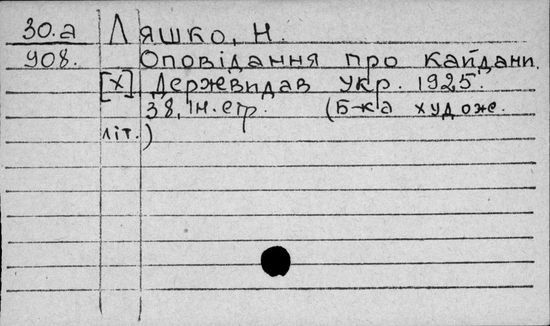 30.a Ляшко, Н.
908. Оповідання про кайдани.
[X] Державидав Укр. 1925.
38, ін. стр. (Б-ка художе.
літ.)